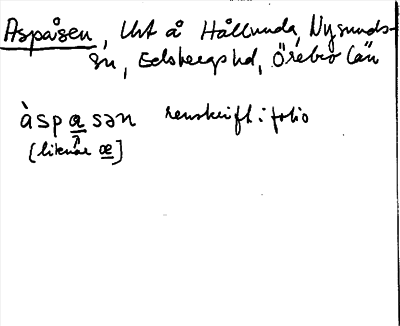 Aspåsen, Uht å Hållunda, Nysunds-
sn, Edsbergs hd, Örebro län
àspasən renskrift i folio
[liknar æ]